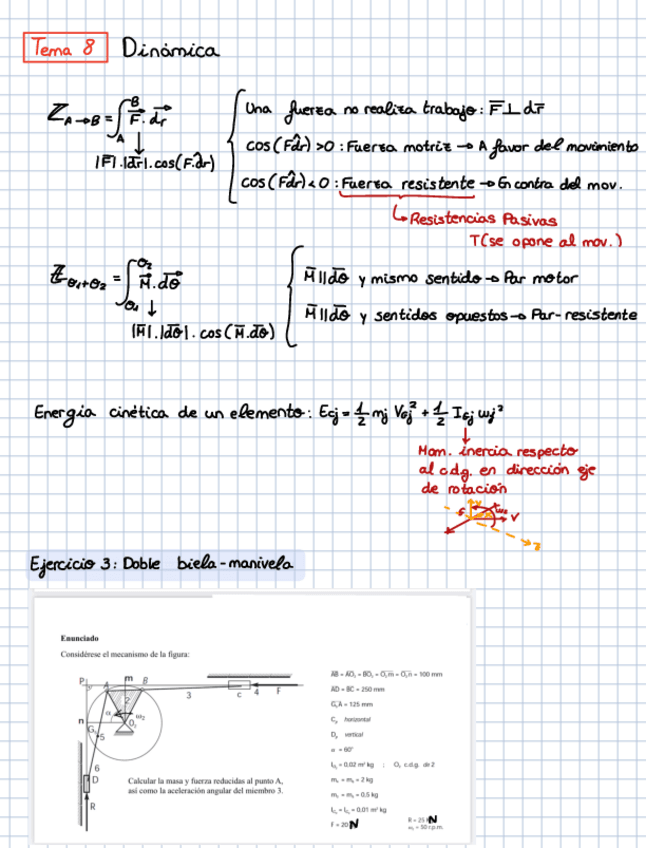 Tema 8 Dinámica
Z A→B = ∫ A B F⃗ . dr⃗
|F̄|.|dr̄|.cos(F.d̂r)
Una fuerza no realiza trabajo: F̄⊥dr̄
cos(Fd̂r)>0 : Fuerza motriz → A favor del movimiento
cos(Fd̂r)<0 : Fuerza resistente → En contra del mov.
↳ Resistencias Pasivas
T(se opone al mov.)
Z θ1→θ2 = ∫ θ1 θ2 M⃗ . dθ⃗
|M̄|.|dθ̄|. cos(M̄.dθ̄)
M̄||dθ̄ y mismo sentido → Par motor
M̄||dθ̄ y sentidos opuestos → Par-resistente
Energía cinética de un elemento: Ecj = 1/2 mj VGj² + 1/2 IGj ωj²
Mom. inercia respecto
al cdg. en dirección eje
de rotación
Ejercicio 3: Doble biela-manivela
Enunciado
Considérese el mecanismo de la figura:
P A m B
3 C 4 F
2
n
α
ω2
O2
G5
5
6
D
R
Calcular la masa y fuerza reducidas al punto A,
así como la aceleración angular del miembro 3.
AB = AO2 = BO2 = O2m = O2n = 100 mm
AD = BC = 250 mm
G5A = 125 mm
C, horizontal
D, vertical
α = 60°
= 0,02 m² kg ; O2 c.d.g. de 2
= 2 kg
= 0,5 kg
= 0,01 m² kg
F = 20 N
R = 25 N
ω2 = 50 r.p.m.